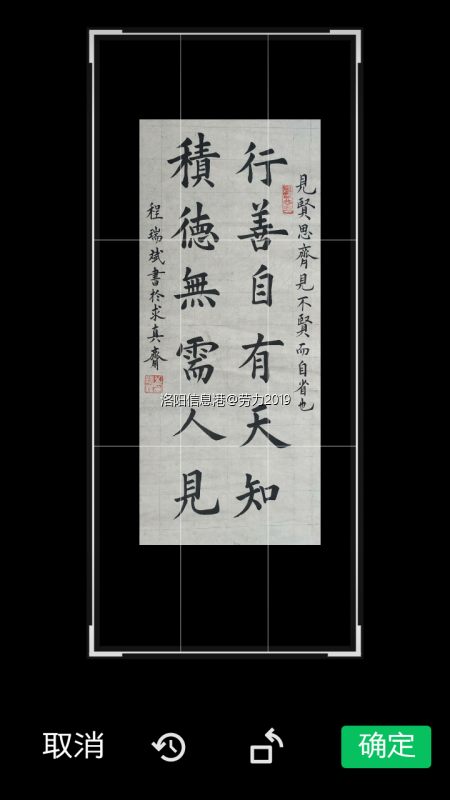 見賢思齊見不賢而自省也
行善自有天知
積德無需人見
程瑞斌書於求真齋
洛阳信息港@劳力2019
取消
确定